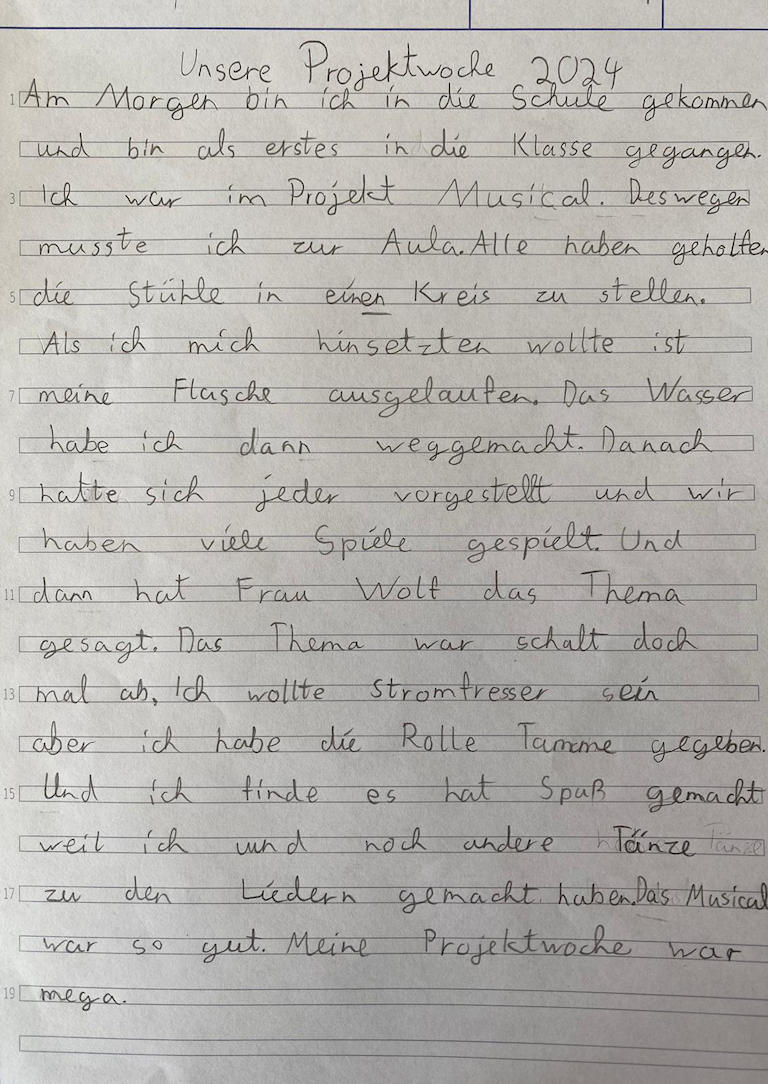 Unsere Projektwoche 2024
1 Am Morgen bin ich in die Schule gekommen
und bin als erstes in die Klasse gegangen.
3 Ich war im Projekt Musical. Deswegen
musste ich zur Aula. Alle haben geholfen
5 die Stühle in einen Kreis zu stellen.
Als ich mich hinsetzten wollte ist
7 meine Flasche ausgelaufen. Das Wasser
habe ich dann weggemacht. Danach
9 hatte sich jeder vorgestellt und wir
haben viele Spiele gespielt. Und
11 dann hat Frau Wolf das Thema
gesagt. Das Thema war schalt doch
13 mal ab, Ich wollte Stromfresser sein
aber ich habe die Rolle Tamme gegeben.
15 Und ich finde es hat Spaß gemacht
weil ich und noch andere Tänze Tänze
17 zu den Liedern gemacht haben. Das Musical
war so gut. Meine Projektwoche war
19 mega.